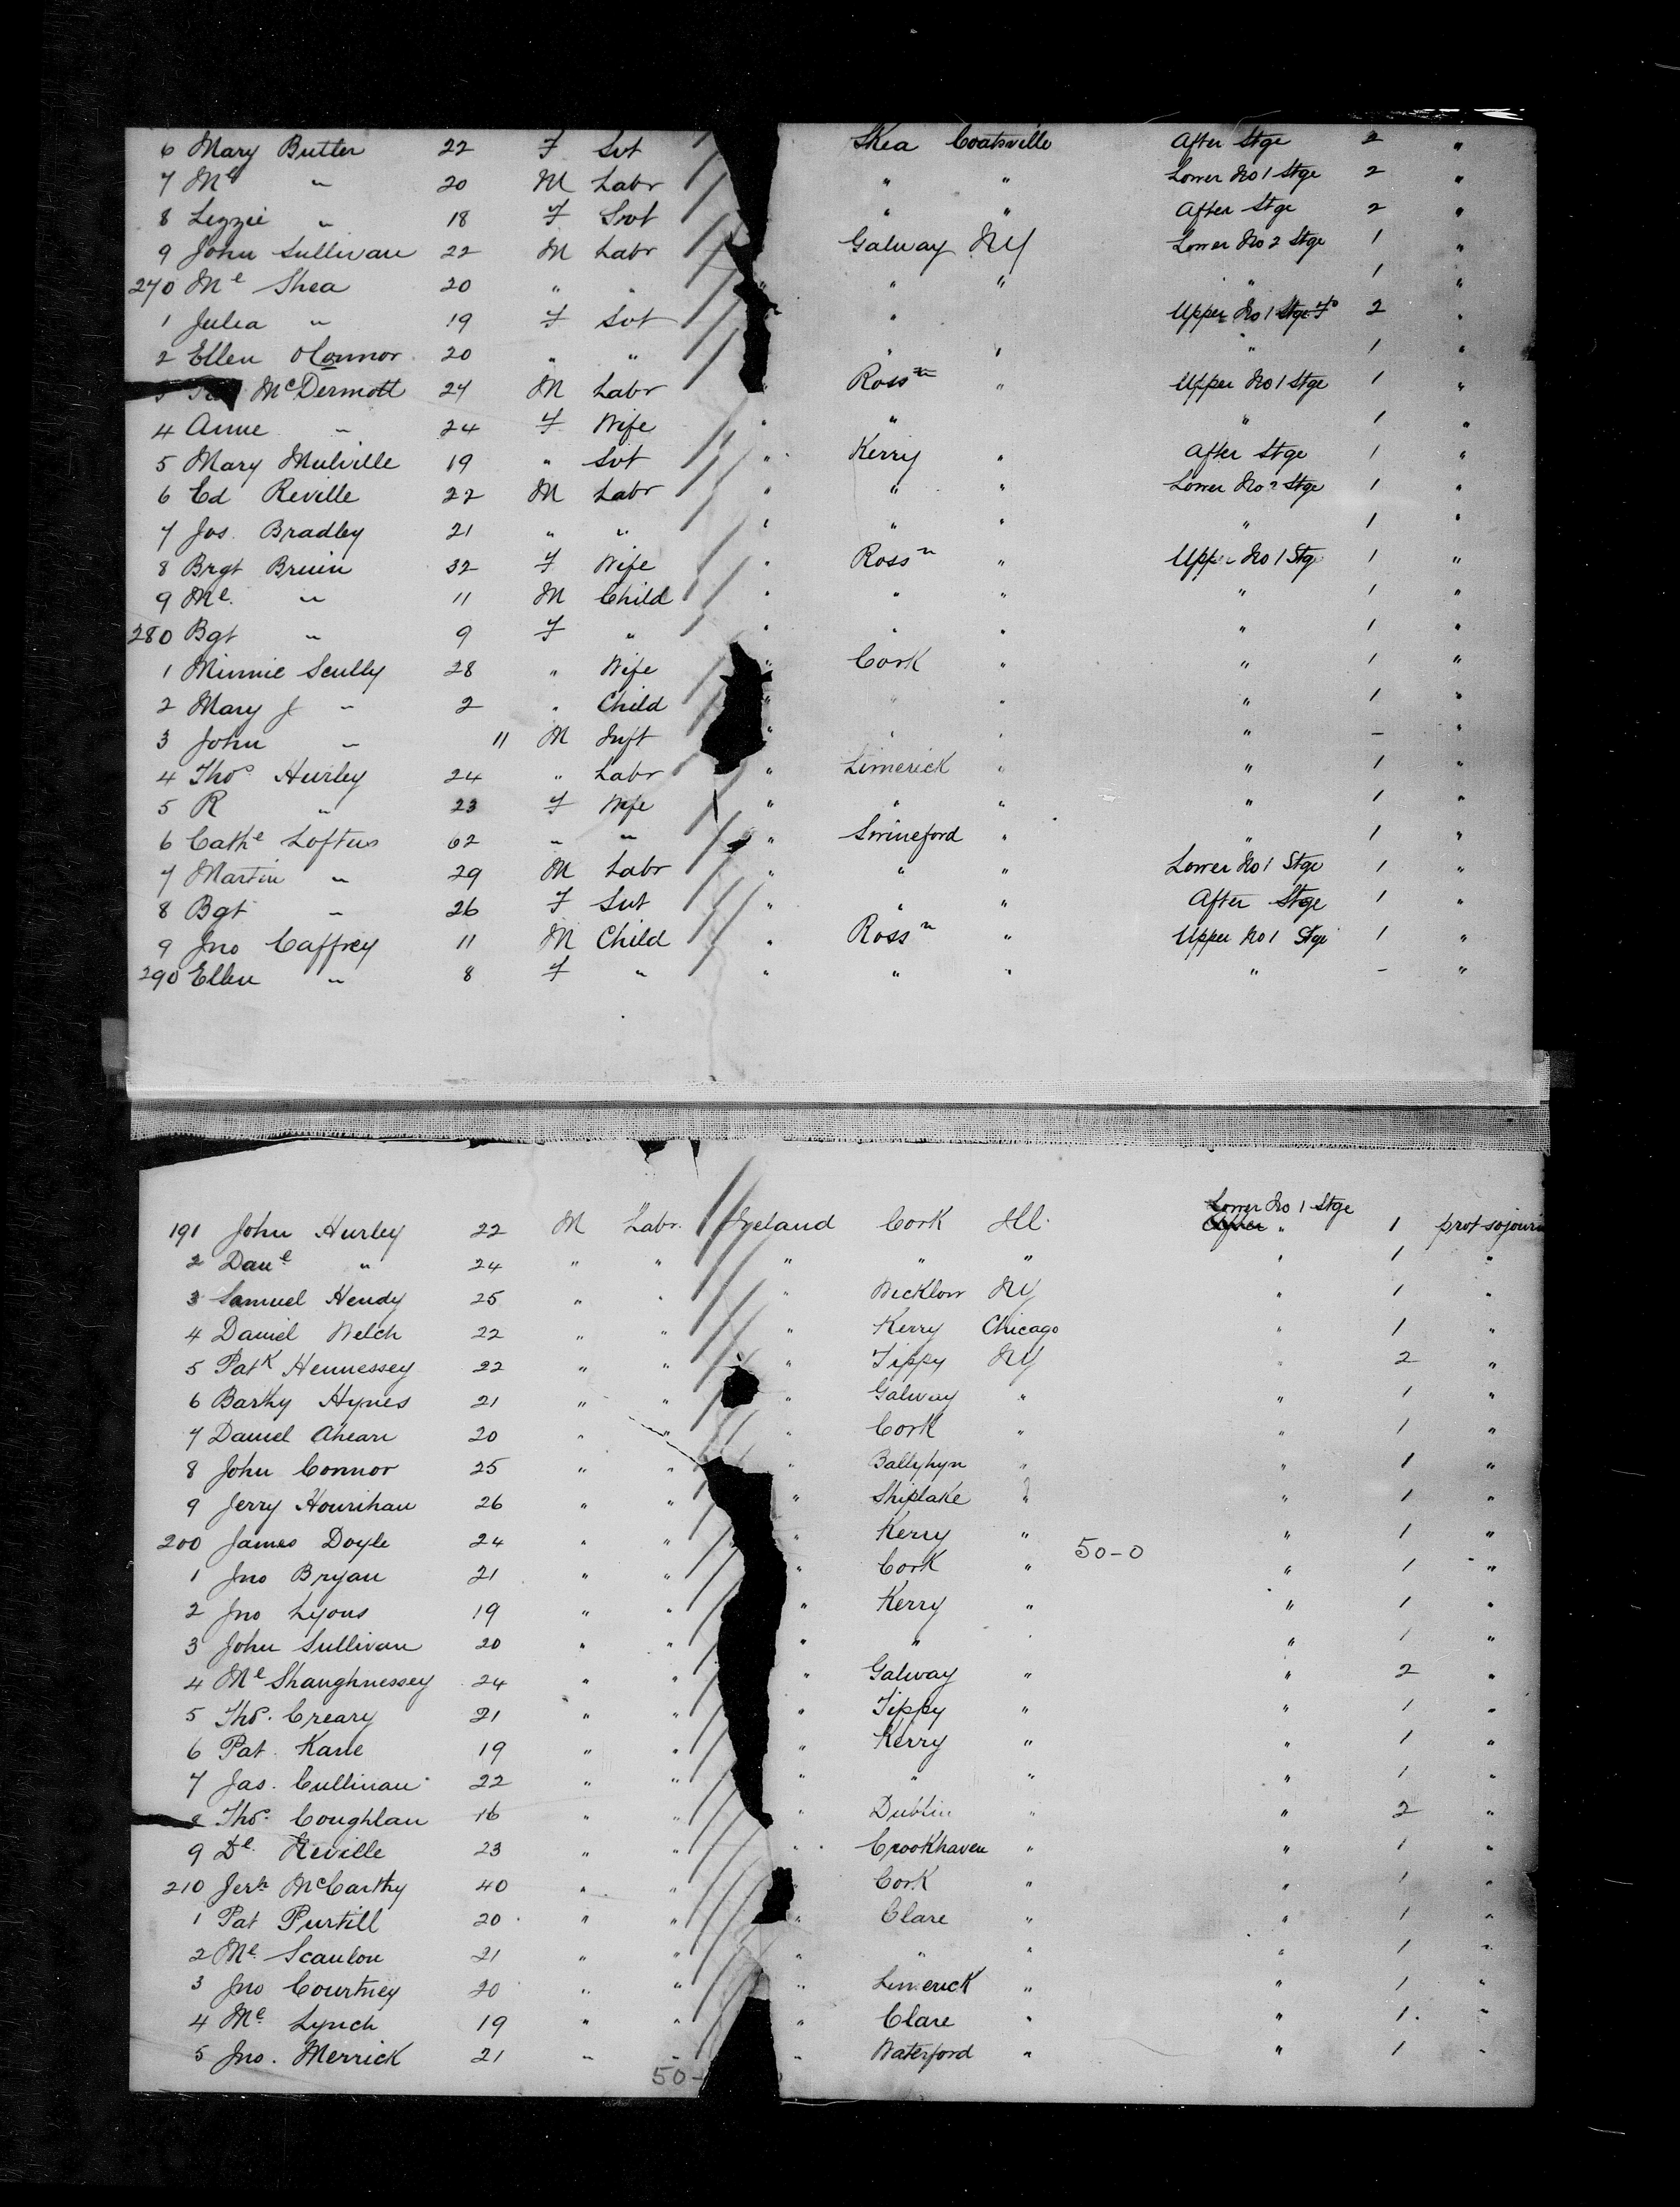 6 Mary Butter 22 F Svt Skea Coatsville After Stge 2 "
7 Ml " 20 M Labr " " Lower No 1 Stge 2 "
8 Lizzie " 18 F Svt " " After Stge 2 "
9 John Sullivan 22 M Labr Galway NY Lower No 2 Stge 1 "
270 Ml Shea 20 " " " " " " 1 "
1 Julia " 19 F Svt " Upper No 1 Stge 2 "
2 Ellen OConnor 20 " " " " " 1 "
McDermott 24 M Labr " Rossn " Upper No 1 Stge 1 "
4 Anne " 24 F Wife " " " 1 "
5 Mary Mulville 19 " Svt " Kerry " After Stge 1 "
6 Ed Reville 22 M Labr " " " Lower No 2 Stge 1 "
7 Jos. Bradley 21 " " " " " " 1 "
8 Brgt Bruin 32 F Wife " Rossn " Upper No 1 Stge 1 "
9 Ml. " 11 M Child " " " " 1 "
280 Bgt " 9 F " " " " " 1 "
1 Minnie Scully 28 " Wife " Cork " " 1 "
2 Mary J " 2 " Child " " " " 1 "
3 John " 11 M Inft " " " " - "
4 Thos Hurley 24 " Labr " Limerick " " 1 "
5 R " 23 F Wife " " " " 1 "
6 Cathe Loftus 62 " " " Swineford " " 1 "
7 Martin " 29 M Labr " " " Lower No 1 Stge 1 "
8 Bgt " 26 F Svt " " " After Stge 1 "
9 Jno Caffrey 11 M Child " Rossn " Upper No 1 Stge 1 "
290 Ellen " 8 F " " " " " - "
Lower No 1 Stge
191 John Hurley 22 M Labr. Ireland Cork Ill. Upper " 1 prot sojourn
2 Danl " 24 " " " " " " 1 "
3 Samuel Hendy 25 " " " Wicklow NY " 1 "
4 Daniel Welch 22 " " " Kerry Chicago " 1 "
5 Patk Hennessey 22 " " " Tippy NY " 2 "
6 Barky Hynes 21 " " " Galway " " 1 "
7 Daniel Ahearn 20 " " " Cork " " 1 "
8 John Connor 25 " " " Ballyhyn " " 1 "
9 Jerry Hourihan 26 " " " Shiplake " " 1 "
200 James Doyle 24 " " " Kerry " 50-0 " 1 "
1 Jno Bryan 21 " " " Cork " " 1 "
2 Jno Lyons 19 " " " Kerry " " 1 "
3 John Sullivan 20 " " " " " " 1 "
4 Ml Shaughnessey 24 " " " Galway " " 2 "
5 Thos. Creary 21 " " " Tippy " " 1 "
6 Pat. Kane 19 " " " Kerry " " 1 "
7 Jas. Cullinan 22 " " " " " " 1 "
8 Thos. Coughlan 16 " " " Dublin " " 2 "
9 Dl. Neville 23 " " " Crookhaven " " 1 "
210 Jerh McCarthy 40 " " Cork " " 1 "
1 Pat Purtill 20 " " " Clare " " 1 "
2 Ml. Scanlon 21 " " " " " " 1 "
3 Jno Courtney 20 " " " Limerick " " 1 "
4 Ml. Lynch 19 " " " Clare " " 1 "
5 Jno. Merrick 21 " " " Waterford " " 1 "
50-